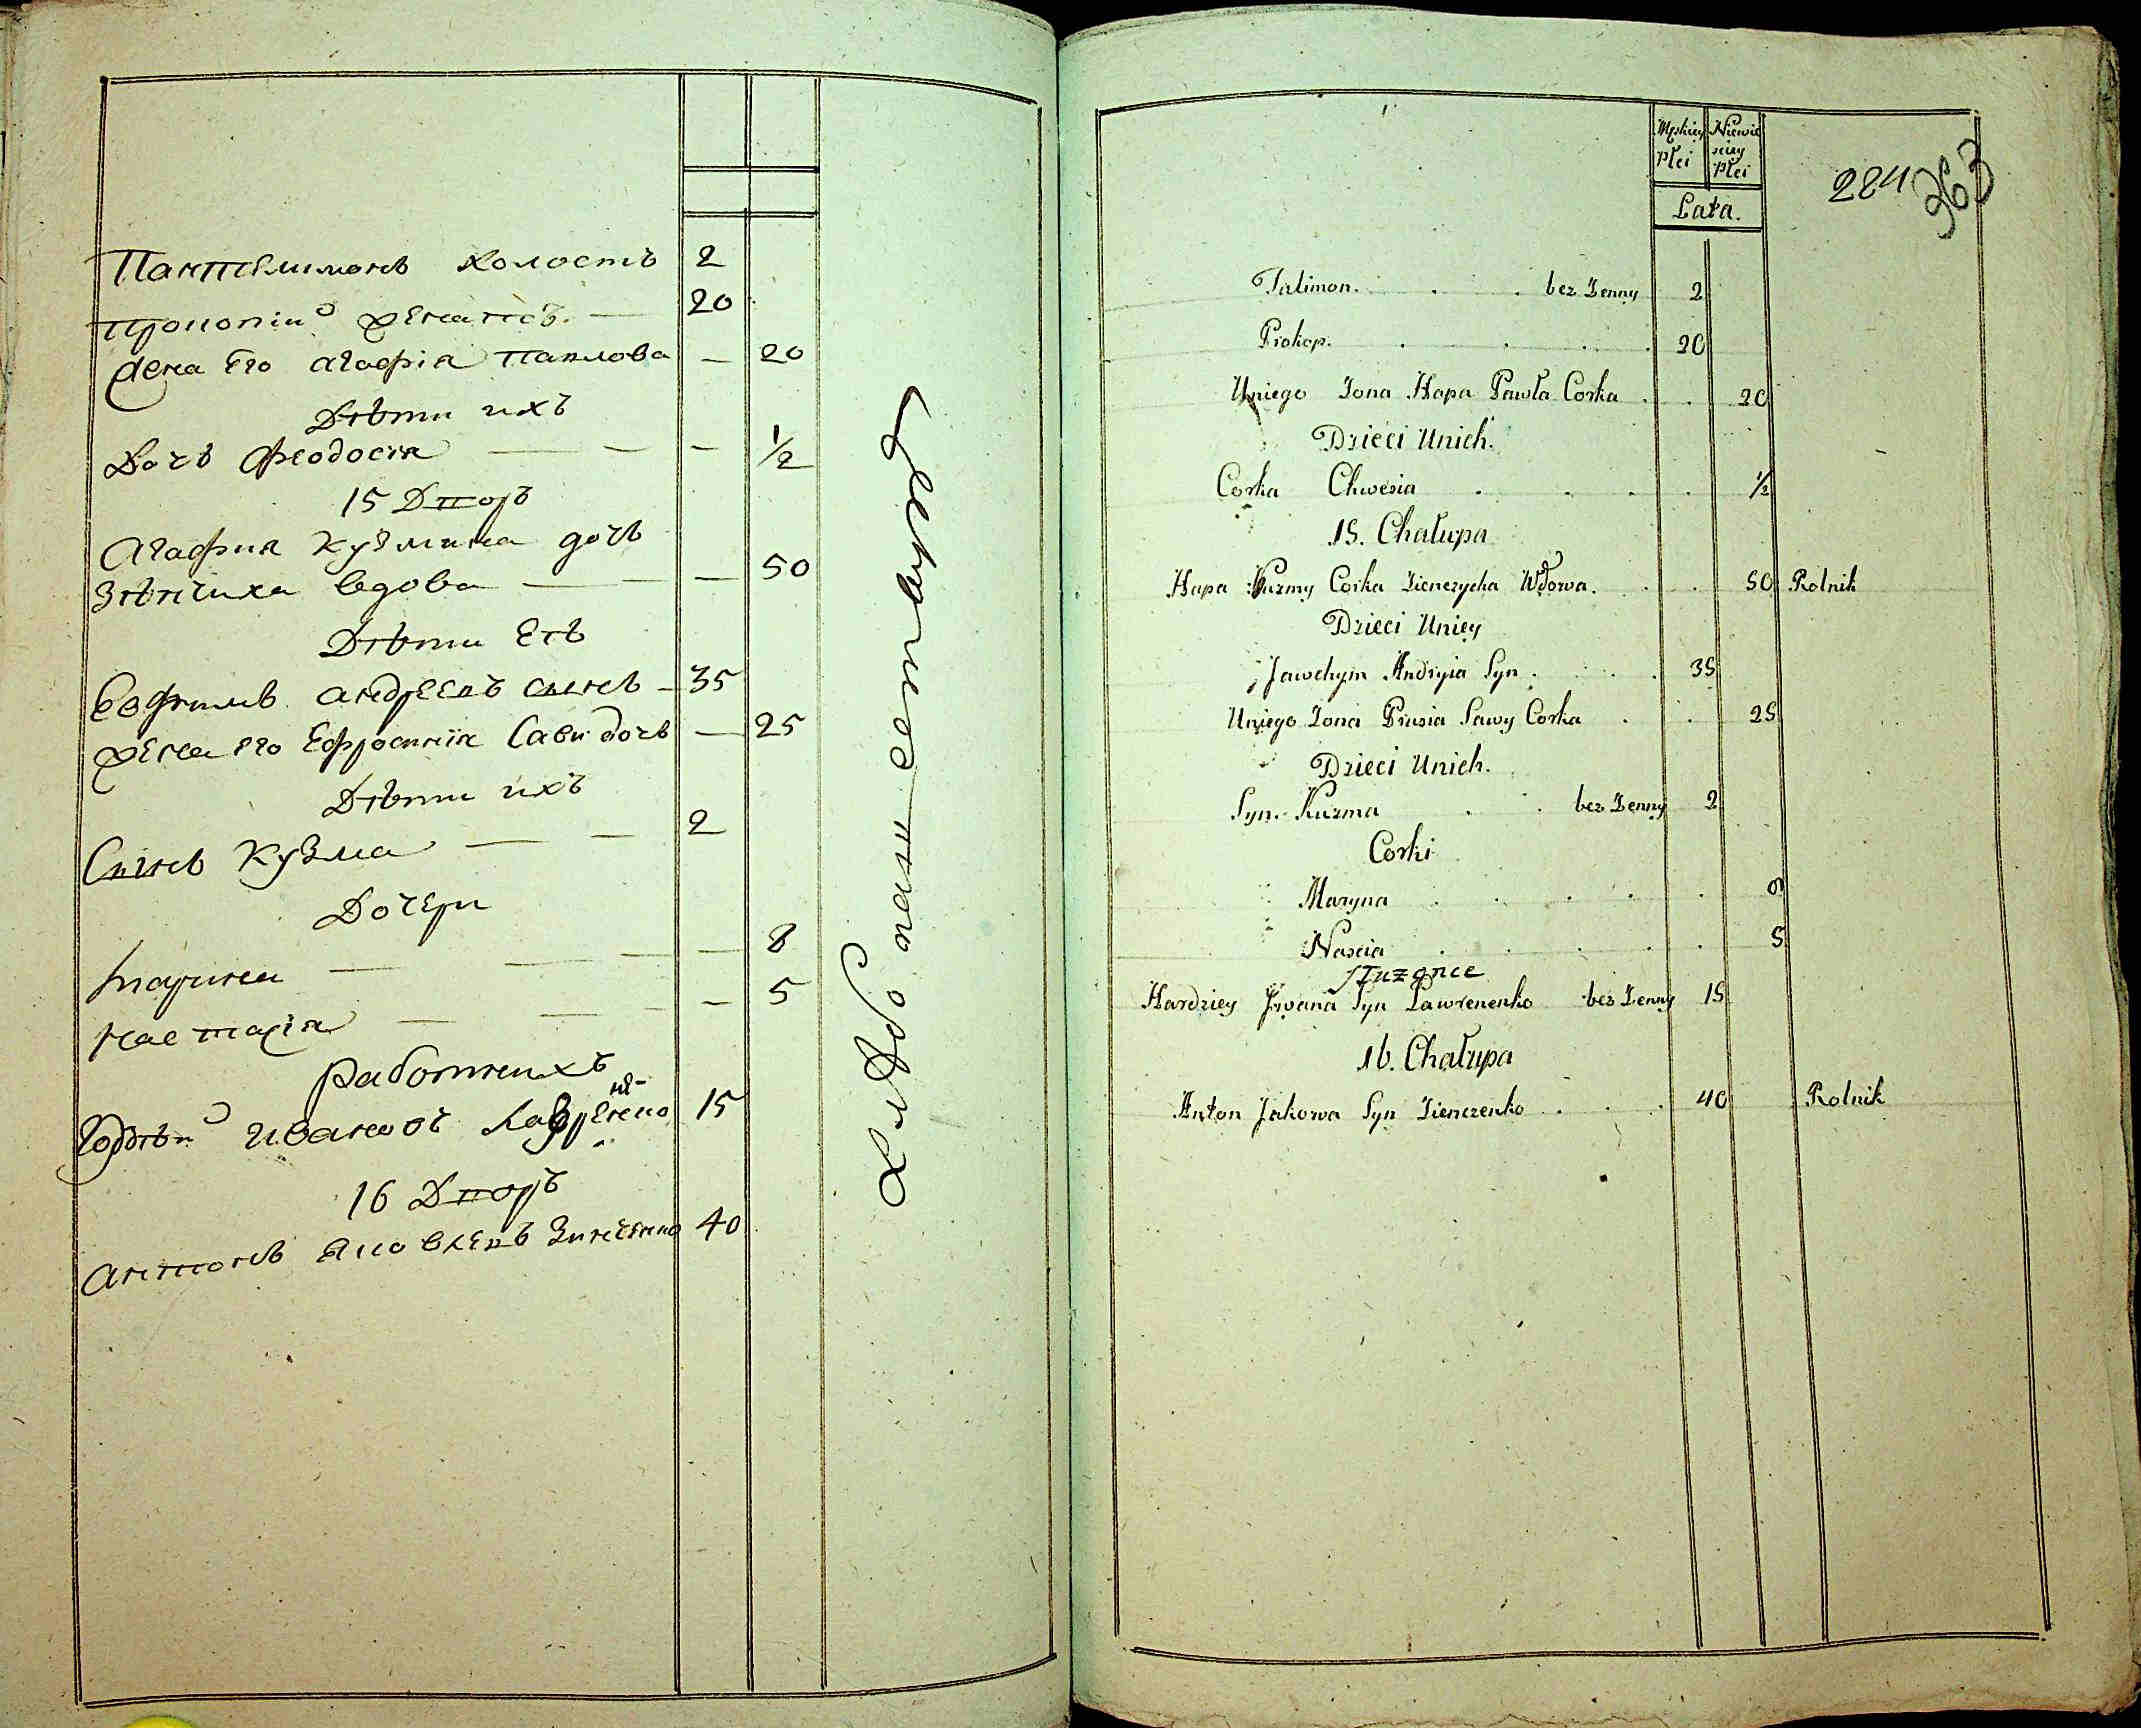 Пантелимонъ холостъ 2
Прокопій женатъ 20
жена его Агафія Павлова — 20
Дѣти ихъ
Дочь Феодосія — 1/2
15 Дворъ
Агафия Кузмина дочь
Зѣнчиха вдова — 50
Дѣти Еѣ
Ефтимъ Андреевъ сынъ 35
жена его Ефросинія Сави дочь — 25
Дѣти ихъ
Сынъ Кузма — 2
Дочери
Марина — 8
Настасія — 5
работникъ
Гордѣй Ивановъ Лавренко 15
16 Дворъ
Антонъ Яковлевъ Зинченко 40
Хлѣбопашествуетъ
Męskiey Płci
Niewieściey Płci
Lata.
224 363
Talimon. bez Żenny 2
Prokop. 20
Uniego Żona Hapa Pawła Corka 20
Dzieci Unich.
Corka Chwesia 1/2
15. Chałupa
Hapa Kuzmy Corka Zienczycha Wdowa. 50 Rolnik
Dzieci Uniey
Jawchym Andryia Syn 35
Uniego Żona Prusia Sawy Corka 25
Dzieci Unich.
Syn Kuzma bez Żenny 2
Corki
Maryna 8
Nascia 5
Służące
Hardziey Jwana Syn Lawrenenko bez Żenny 15
16. Chałupa
Anton Jakowa Syn Zienczenko 40 Rolnik